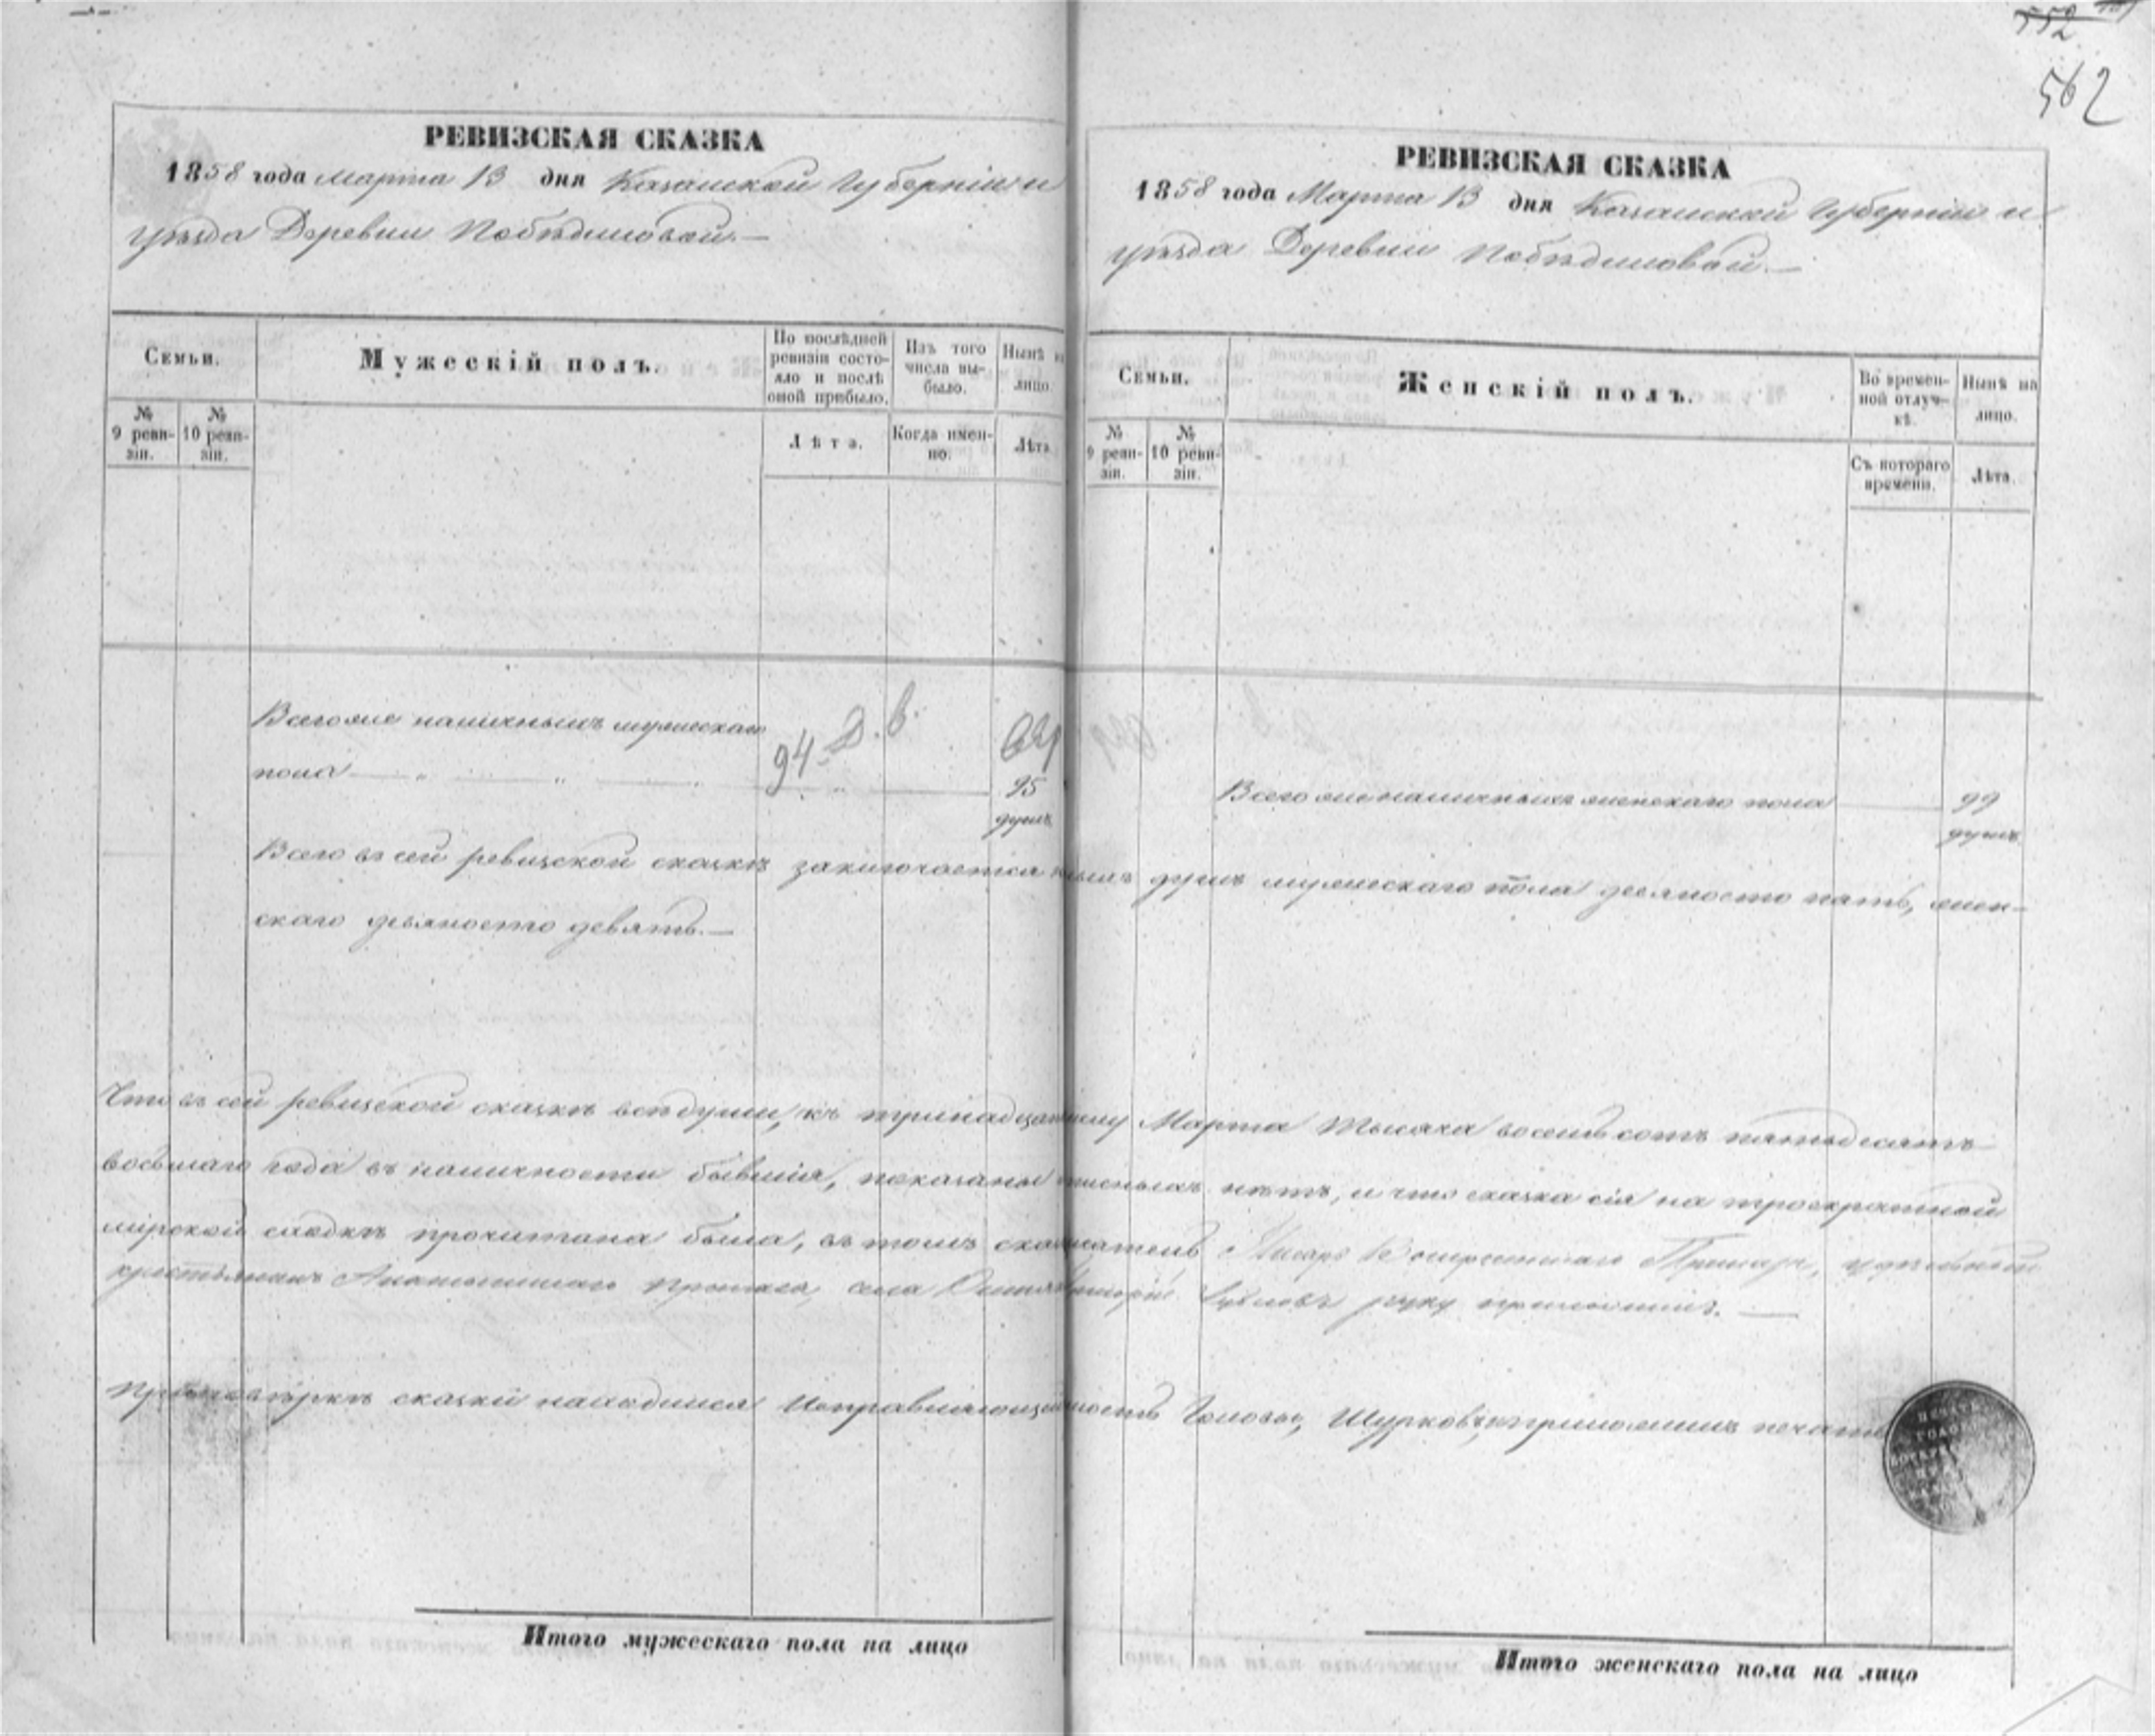 552
562
РЕВИЗСКАЯ СКАЗКА
1858 года Марта 13 дня Казанской Губерніи и
уѣзда Деревни Побѣдиловой.—
Семьи.
Мужескій полъ.
По послѣдней ревизіи состояло и послѣ оной прибыло.
Изъ того числа выбыло.
Нынѣ на лицо.
№ 9 ревизіи.
№ 10 ревизіи.
Лѣта.
Когда именно.
Лѣта
Всего же наличныхъ мужескаго
пола
94
95
душъ
РЕВИЗСКАЯ СКАЗКА
1858 года Марта 13 дня Казанской Губерніи и
уѣзда Деревни Побѣдиловой.—
Семьи.
Женскій полъ.
Во временной отлучкѣ.
Нынѣ на лицо.
№ 9 ревизіи.
№ 10 ревизіи.
Съ котораго времени.
Лѣта.
Всего же наличныхъ женскаго пола 99
душъ
Всего въ сей ревизской сказкѣ заключается душъ мужескаго пола девяносто пять, жен-
скаго девяносто девять.—
Что въ сей ревизской сказкѣ всѣ души, къ тринадцатому Марта тысяча восемьсотъ пятьдесятъ
восьмаго года въ наличности бывшія, показаны и нѣтъ, и что сказка сія на троекратной
мірской сходкѣ прочитана была, въ томъ
крестьянинъ приказа, села руку приложилъ.—
При повѣркѣ сказки находился Исправляющій должность Головы, Шурковъ, и приложилъ печать
Итого мужескаго пола на лицо
Итого женскаго пола на лицо